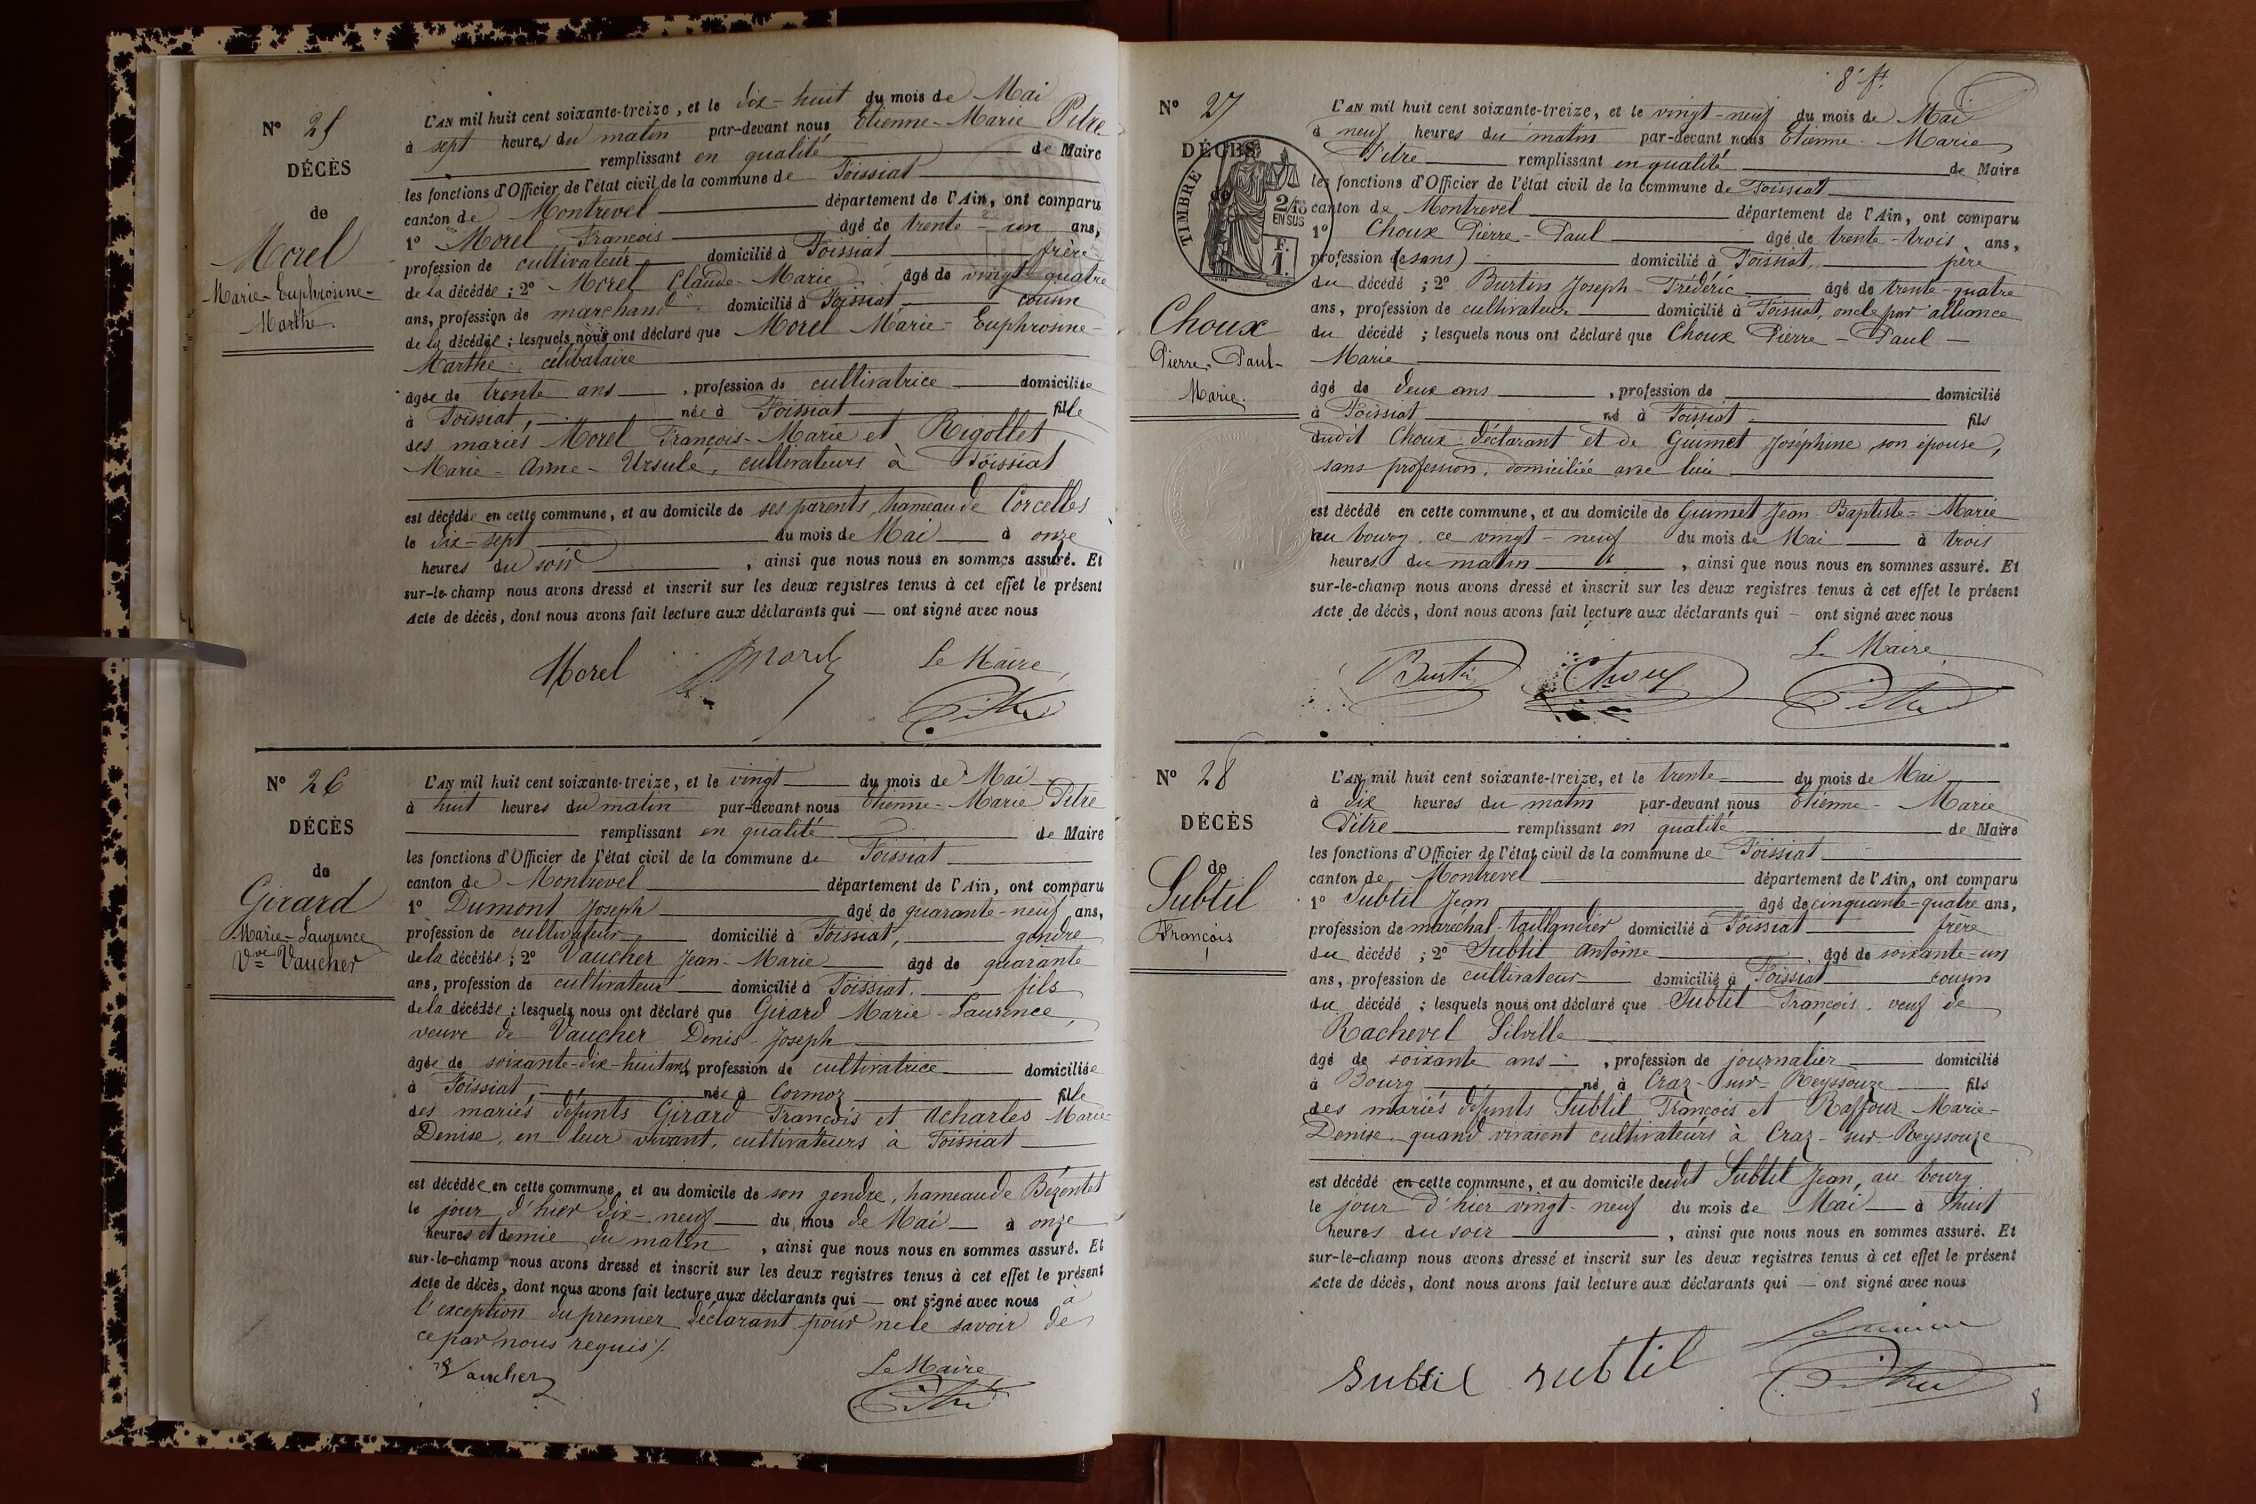 N° 25
DÉCÈS
de
Morel
Marie-Euphrosine-
Marthe.
L'AN mil huit cent soixante-treize, et le dix-huit du mois de Mai
à sept heures du matin par-devant nous Etienne-Marie Pitre
remplissant en qualité de Maire
les fonctions d'Officier de l'état civil de la commune de Foissiat
canton de Montrevel département de l'Ain, ont comparu
1° Morel François âgé de trente-un ans,
profession de cultivateur domicilié à Foissiat frère
de la décédée ; 2° Morel Claude-Marie âgé de vingt-quatre
ans, profession de marchand domicilié à Foissiat cousin
de la décédée ; lesquels nous ont déclaré que Morel Marie-Euphrosine-
Marthe, célibataire
âgée de trente ans, profession de cultivatrice domiciliée
à Foissiat, née à Foissiat fille
des mariés Morel François-Marie et Rigollet
Marie-Anne-Ursule, cultivateurs à Foissiat
est décédée en cette commune, et au domicile de ses parents, hameau de Corcelles
le dix-sept du mois de Mai à onze
heures du soir, ainsi que nous nous en sommes assuré. Et
sur-le-champ nous avons dressé et inscrit sur les deux registres tenus à cet effet le présent
Acte de décès, dont nous avons fait lecture aux déclarants qui — ont signé avec nous
Morel Morel Le Maire
Pitre
N° 26
DÉCÈS
de
Girard
Marie-Laurence
Vve Vaucher
L'AN mil huit cent soixante-treize, et le vingt du mois de Mai
à huit heures du matin par-devant nous Etienne-Marie Pitre
remplissant en qualité de Maire
les fonctions d'Officier de l'état civil de la commune de Foissiat
canton de Montrevel département de l'Ain, ont comparu
1° Dumont Joseph âgé de quarante-neuf ans,
profession de cultivateur domicilié à Foissiat, gendre
de la décédée ; 2° Vaucher Jean-Marie âgé de quarante
ans, profession de cultivateur domicilié à Foissiat. fils
de la décédée ; lesquels nous ont déclaré que Girard Marie-Laurence,
veuve de Vaucher Denis-Joseph
âgée de soixante-dix-huit ans, profession de cultivatrice domiciliée
à Foissiat, née à Cormoz fille
des mariés défunts Girard François et Acharles Marie-
Denise, en leur vivant, cultivateurs à Foissiat
est décédée en cette commune, et au domicile de son gendre, hameau de Bézentet
le jour d'hier dix-neuf du mois de Mai à onze
heures et demie du matin, ainsi que nous nous en sommes assuré. Et
sur-le-champ nous avons dressé et inscrit sur les deux registres tenus à cet effet le présent
Acte de décès, dont nous avons fait lecture aux déclarants qui — ont signé avec nous à
l'exception du premier déclarant pour ne le savoir de
ce par nous requis
Vaucher Le Maire
Pitre
8e ft
N° 27
DÉCÈS
de
TIMBRE
2/10
EN SUS
F.
1.
Choux
Pierre-Paul-
Marie.
L'AN mil huit cent soixante-treize, et le vingt-neuf du mois de Mai
à neuf heures du matin par-devant nous Etienne-Marie
Pitre remplissant en qualité de Maire
les fonctions d'Officier de l'état civil de la commune de Foissiat
canton de Montrevel département de l'Ain, ont comparu
1° Choux Pierre-Paul âgé de trente-trois ans,
profession de (sans) domicilié à Foissiat, père
du décédé ; 2° Burtin Joseph-Frédéric âgé de trente-quatre
ans, profession de cultivateur domicilié à Foissiat, oncle par alliance
du décédé ; lesquels nous ont déclaré que Choux Pierre-Paul-
Marie
âgé de deux ans, profession de domicilié
à Foissiat né à Foissiat fils
dudit Choux déclarant et de Guimet Joséphine, son épouse,
sans profession, domiciliée avec lui
est décédé en cette commune, et au domicile de Guimet Jean-Baptiste-Marie
au bourg, ce vingt-neuf du mois de Mai à trois
heures du matin, ainsi que nous nous en sommes assuré. Et
sur-le-champ nous avons dressé et inscrit sur les deux registres tenus à cet effet le présent
Acte de décès, dont nous avons fait lecture aux déclarants qui — ont signé avec nous
Le Maire
Burtin Choux Pitre
N° 28
DÉCÈS
de
Subtil
François
L'AN mil huit cent soixante-treize, et le trente du mois de Mai
à dix heures du matin par-devant nous Etienne-Marie
Pitre remplissant en qualité de Maire
les fonctions d'Officier de l'état civil de la commune de Foissiat
canton de Montrevel département de l'Ain, ont comparu
1° Subtil Jean âgé de cinquante-quatre ans,
profession de maréchal-taillandier domicilié à Foissiat frère
du décédé ; 2° Subtil Antoine âgé de soixante-un
ans, profession de cultivateur domicilié à Foissiat cousin
du décédé ; lesquels nous ont déclaré que Subtil François, veuf de
Rachevel Silville
âgé de soixante ans, profession de journalier domicilié
à Bourg né à Craz-sur-Reyssouze fils
des mariés défunts Subtil François et Raffour Marie-
Denise, quand vivaient cultivateurs à Craz-sur-Reyssouze
est décédé en cette commune, et au domicile dudit Subtil Jean, au bourg
le jour d'hier vingt-neuf du mois de Mai à huit
heures du soir, ainsi que nous nous en sommes assuré. Et
sur-le-champ nous avons dressé et inscrit sur les deux registres tenus à cet effet le présent
Acte de décès, dont nous avons fait lecture aux déclarants qui — ont signé avec nous
Le Maire
Subtil Subtil Pitre
8